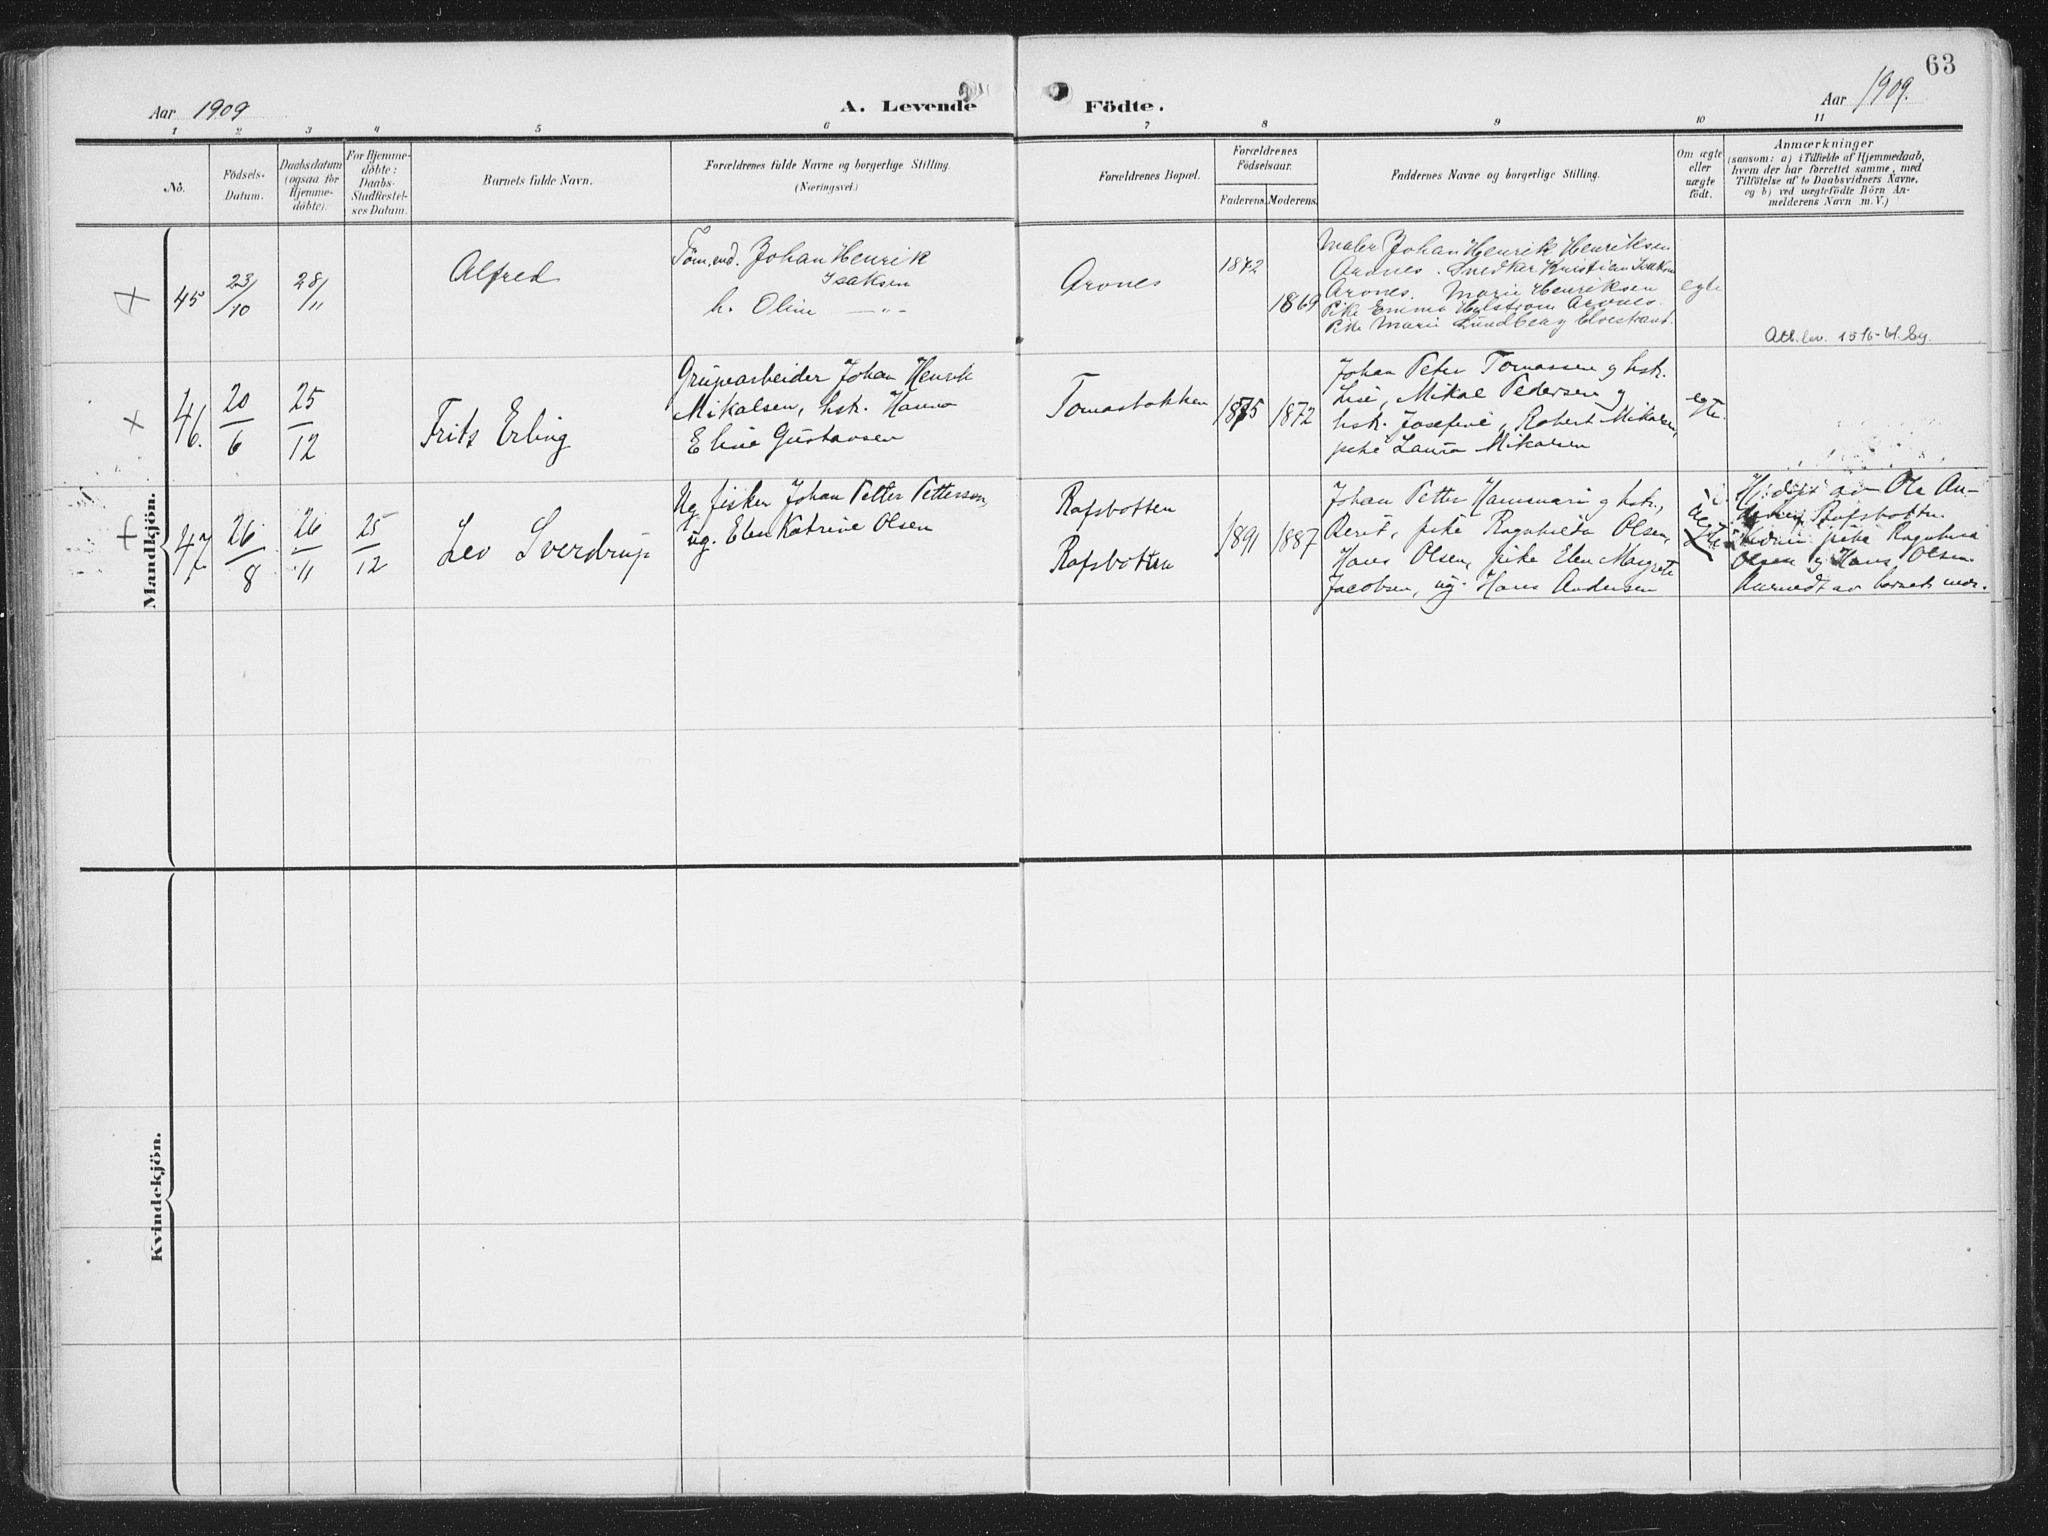 63
Aar 1909
A. Levende Födte.
Aar 1909.
1 2 3 4 5 6 7 8 9 10 11
No.
Födsels-
Datum.
Daabsdatum
(ogsaa for
Hjemme-
döbte).
For Hjemme-
döbte:
Daabs-
Stadfæstel-
ses Datum.
Barnets fulde Navn.
Forældrenes fulde Navne og borgerlige Stilling.
(Næringsvei.)
Forældrenes Bopæl.
Forældrenes
Födselsaar.
Faderens.
Moderens.
Faddernes Navne og borgerlige Stilling.
Om ægte
eller
uægte
födt.
Anmærkninger
(saasom: a) i Tilfælde af Hjemmedaab,
hvem der har forrettet samme, med
Tilföielse af to Daabsvidners Navne,
og b) ved uægtefödte Börn An-
melderens Navn m. V.)
Mandkjön.
45
23/10
28/11
Alfred
Töm.md. Johan Henrik
Isaksen
h. Oline —"—
Arones
1872
1869
Maler Johan Henrik Henriksen
Arones. Snedker Kristian Isaksen
Arones. Marie Henriksen
Pike Emma Hylstrøm Arones.
Pike Marie Lundberg Elvestrand.
egte
Att. lev.
46.
20/6
25/12
Frits Erling
Grubearbeider Johan Henrik
Mikalsen, hstr. Hanna
Eline Gustavsen
Tomasbakken
1875
1872
Johan Peter Tomassen og hstr.
Lise, Mikal Pedersen og
hstr. Josefine, Robert Mikalsen,
pike Laura Mikalsen
egte.
47
26/8
26/11
25/12
Leo Sverdrup
Ug. fisker Johan Petter Petterson,
ug. Elen Katrine Olsen
Rafsbotten
Rafsbotten
1891
1887
Johan Petter Hansen og hstr.,
Berit, pike Ragnhilda Olsen,
Hans Olsen, pike Elen Margrete
Jacobsen, ug. Hans Andersen
Hj. döpt av Ole An-
dersen Rafsbotten.
Vidner pike Ragnhild
Olsen og Hans Olsen
Anmeldt av barnets mor.
Kvindekjön.